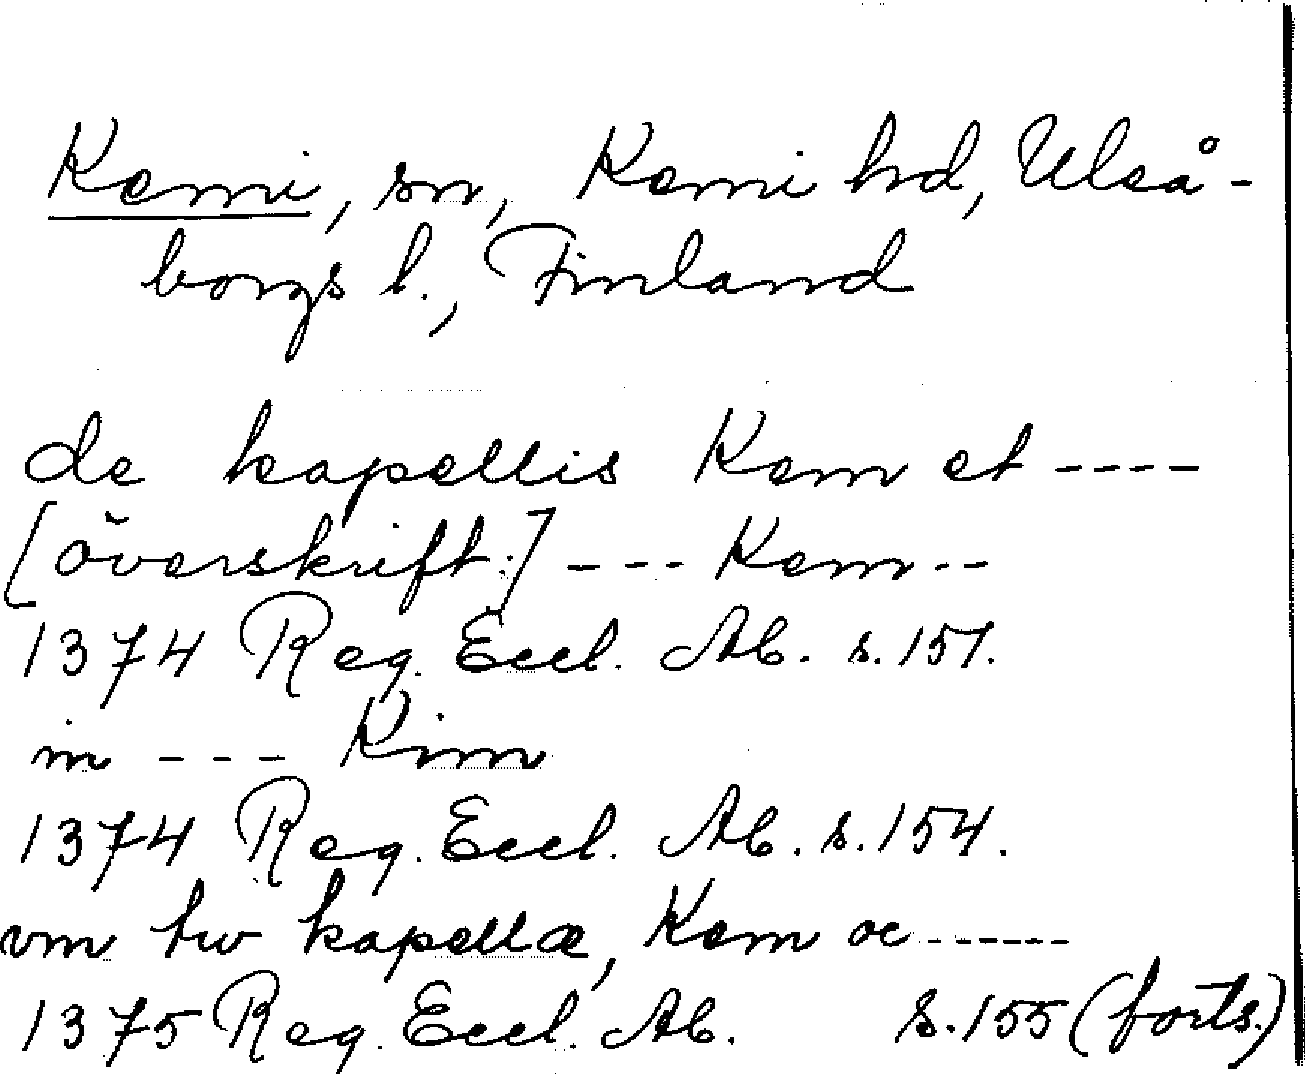 Kemi, sn, Kemi hd, Uleå-
borgs l., Finland
de kapellis Kem et ----
[överskift:] --- Kem --
1374 Reg. Eccl. Ab. s. 151.
in --- Kim
1374 Reg. Eccl. Ab. s. 154.
vm tw kapellæ, Kem oc ------
1375 Reg. Eccl. Ab. s. 155 (forts.)